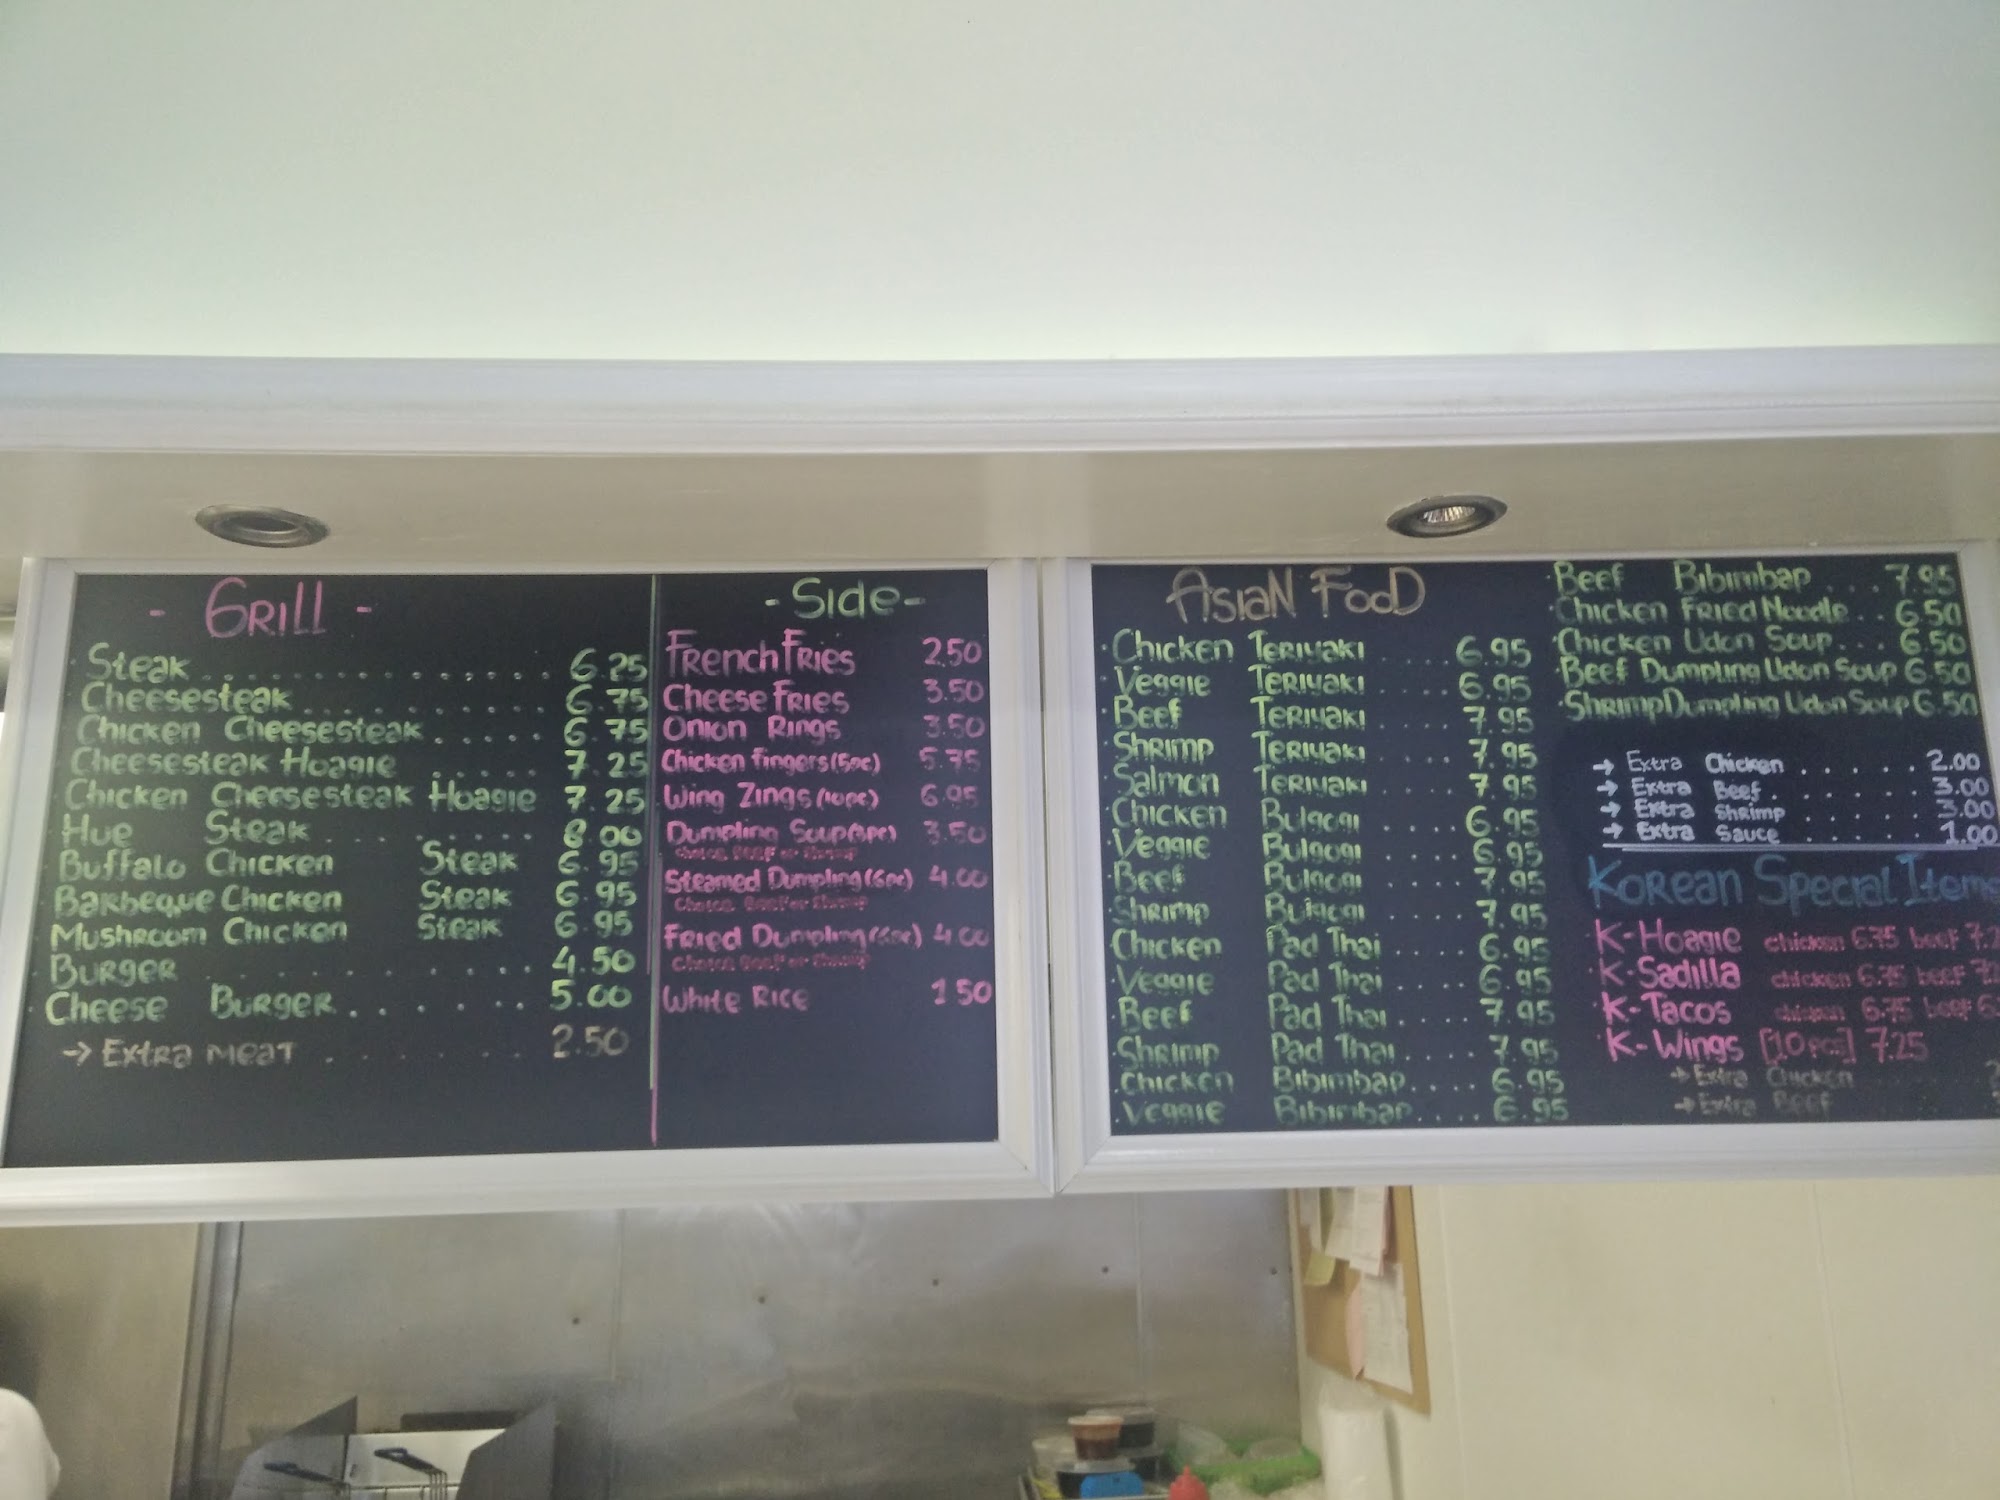 - Grill -
Steak . . . . . . . . . . . . . . . 6.25
Cheesesteak . . . . . . . . . . . . 6.75
Chicken Cheesesteak . . . . . 6.75
Cheesesteak Hoagie . . . . . 7.25
Chicken Cheesesteak Hoagie 7.25
Hue Steak . . . . . . . . 8.00
Buffalo Chicken Steak 6.95
Barbeque Chicken Steak 6.95
Mushroom Chicken Steak 6.95
Burger . . . . . . . . . . . . 4.50
Cheese Burger . . . . . . . 5.00
→ Extra meat . . . . . . . . 2.50
- Side -
French Fries 2.50
Cheese Fries 3.50
Onion Rings 3.50
Chicken fingers (5pc) 5.75
Wing Zings (10pc) 6.95
Dumpling Soup 3.50
choice Beef or Shrimp
Steamed Dumpling (6pc) 4.00
Choice Beef or Shrimp
Fried Dumpling (6pc) 4.00
Choice Beef or Shrimp
White Rice 1.50
Asian Food
Chicken Teriyaki . . . . 6.95
Veggie Teriyaki . . . . 6.95
Beef Teriyaki . . . . 7.95
Shrimp Teriyaki . . . . 7.95
Salmon Teriyaki . . . . 7.95
Chicken Bulgogi . . . . 6.95
Veggie Bulgogi . . . . 6.95
Beef Bulgogi . . . . 7.95
Shrimp Bulgogi . . . . 7.95
Chicken Pad Thai . . . . 6.95
Veggie Pad Thai . . . . 6.95
Beef Pad Thai . . . . 7.95
Shrimp Pad Thai . . . . 7.95
Chicken Bibimbap . . . . 6.95
Veggie Bibimbap . . . . 6.95
Beef Bibimbap . . . . 7.95
Chicken Fried Noodle . . 6.50
Chicken Udon Soup . . . 6.50
Beef Dumpling Udon Soup 6.50
Shrimp Dumpling Udon Soup 6.50
→ Extra Chicken . . . . . . 2.00
→ Extra Beef . . . . . . . 3.00
→ Extra Shrimp . . . . . . 3.00
→ Extra Sauce . . . . . . 1.00
Korean Special Items
K-Hoagie chicken 6.75 beef
K-Sadilla chicken 6.75 beef
K-Tacos chicken 6.75 beef
K-Wings [10 pcs] 7.25
→ Extra Chicken
→ Extra Beef